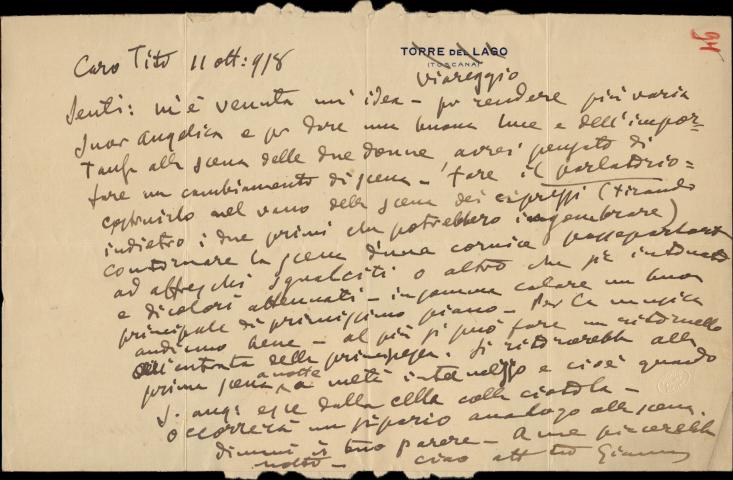 94
TORRE DEL LAGO
(TOSCANA)
Viareggio
Caro Tito 11 ott: 918
Senti: m'è venuta un'idea – per rendere più varia
Suor Angelica e per dare una buona luce e dell'impor-
tanza alla scena delle due donne avrei pensato di
fare un cambiamento di scena – fare il parlatorio =
costruirlo nel vano della scena dei cipressi (tirando
indietro i due primi che potrebbero ingombrare)
contornare la scena d'una cornice passepartout
ad affreschi sgualciti o altro che sia intonato
e di colori attenuati – insomma calare un buon
principale di primissimo piano – Per la musica
andiamo bene – al più si può fare un ritornello
all'entrata della principessa. Si ritornerebbe alla
prima scena a notte a metà intermezzo e cioè quando
S. Ang: esce dalla cella colla ciotola –
occorrerà un sipario analogo alla scena.
dimmi il tuo parere – A me piacerebbe
molto – ciao aff tuo Giacomo